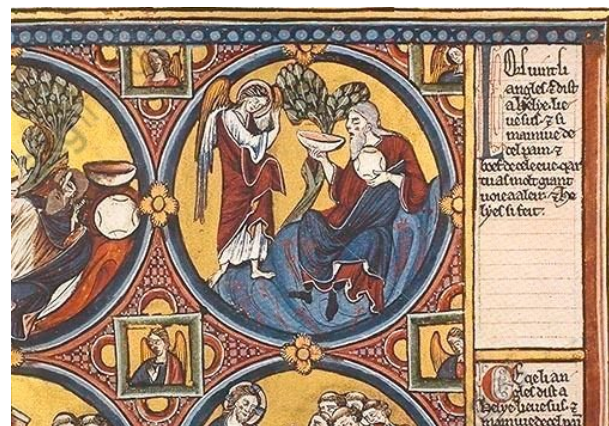 Ici vint li
angles ⁊ dist
a helye lie
ue sus ⁊ si
maniue de
cel pain ⁊
boif de cele eue qar
tu as mlt grant
uoie a aler ⁊ he
lyes si feit
Ce qe li an
gles dist a
helye lieue sus ⁊
maniue de cel pain